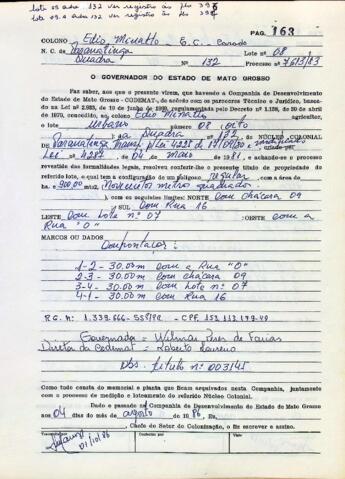 lote 08 adra 132 ver registro às fls 398
lote 09 A adra 132 ver registro às fls 398
PAG. 163
COLONO Edio Minatto E.C. Casado
N. C. de Paranatinga Lote nº 08
Quadra Nº 132 Processo nº 7613/83
O GOVERNADOR DO ESTADO DE MATO GROSSO
Faz saber, aos que o presente virem, que havendo a Companhia de Desenvolvimento
do Estado de Mato Grosso - CODEMAT, de acôrdo com os pareceres Técnico e Jurídico, baseado
na Lei nº 2.925, de 10 de junho de 1969, regulamentado pelo Decreto nº 1.138, de 20 de abril
de 1970, concedido, ao colono Edio Minatto agricultor,
o lote Urbano número 08 (oito)
da Quadra nº 132, do NÚCLEO COLONIAL
Paranatinga Transf. p/Lei 4228 de 17/09/80 e modificado
Lei nº 4287 de 04 Maio 1981, e achando-se o processo
revestido das formalidades legais, resolveu conferir-lhe o presente título de propriedade do
referido lote, o qual tem a configuração de um polígono regular, com a área de
ha e 900,00 mts2, Novecentos metros quadrados.
), com os seguintes limites: NORTE Com chácara 09
SUL Com Rua 16
LESTE Com Lote nº 07 :OESTE com a
Rua "O"
MARCOS OU DADOS Confrontações:
1-2 - 30.00m com a Rua "O"
2-3 - 30.00m com chácara 09
3-4 - 30.00m com Lote nº 07
4-1 - 30.00m com Rua 16
Governador = Wilmar Peres de Farias
Diretor da Codemat = Roberto Loureiro
Obs. título nº 003145
Como tudo consta do memorial e planta que ficam arquivados nesta Companhia, juntamente
com o processo de medição e loteamento do referido Núcleo Colonial.
Dado e passado na Companhia de Desenvolvimento do Estado de Mato Grosso
aos 04 dias do mês de agosto de 1986, Eu,
, Chefe do Setor de Colonização, o fiz escrever e assino.
Conferido por
Visto
01/10/86